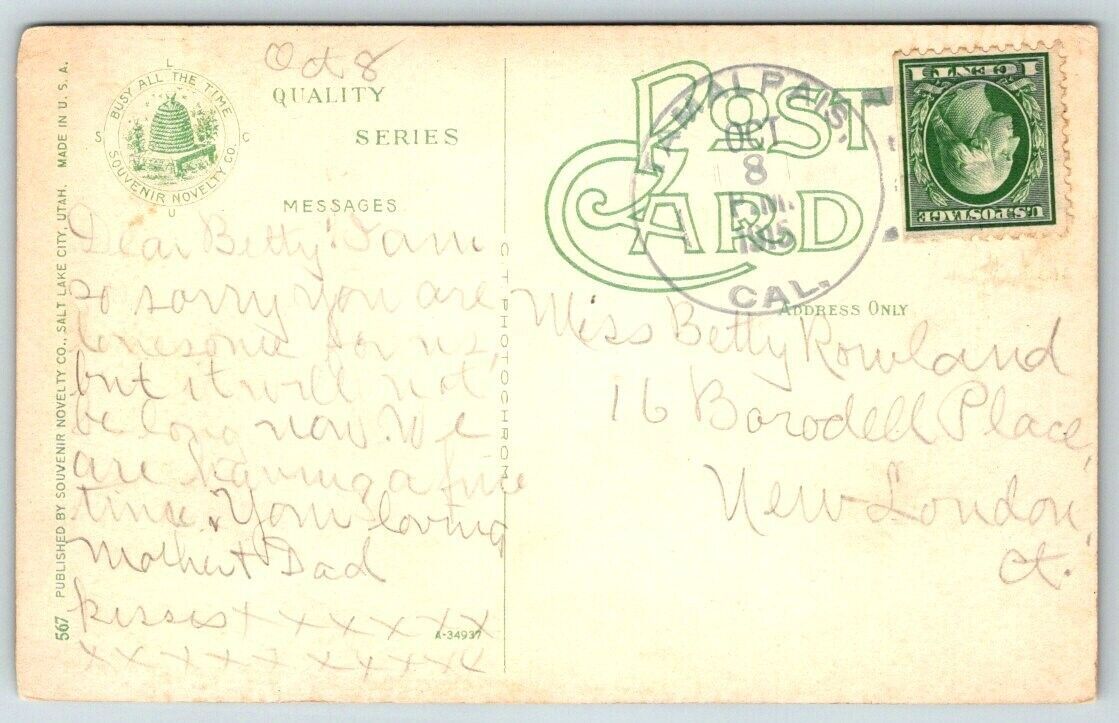 Oct 8
L
S C
U
BUSY ALL THE TIME
SOUVENIR NOVELTY CO.
QUALITY
SERIES
MESSAGES
Dear Betty: I am
so sorry you are
lonesome for us,
but it will not
be long now. We
are having a fine
time. Your loving
Mother + Dad
kisses x x x x x x x
x x x x x x x x x x
567 PUBLISHED BY SOUVENIR NOVELTY CO., SALT LAKE CITY, UTAH. MADE IN U. S. A.
C T PHOTOCHROM
A-34937
POST
CARD
TAMALPAIS,
OCT
8
P.M.
1915
CAL.
1 CENT 1
U.S. POSTAGE
ADDRESS ONLY
Miss Betty Rowland
16 Borodell Place,
New London,
Ct.